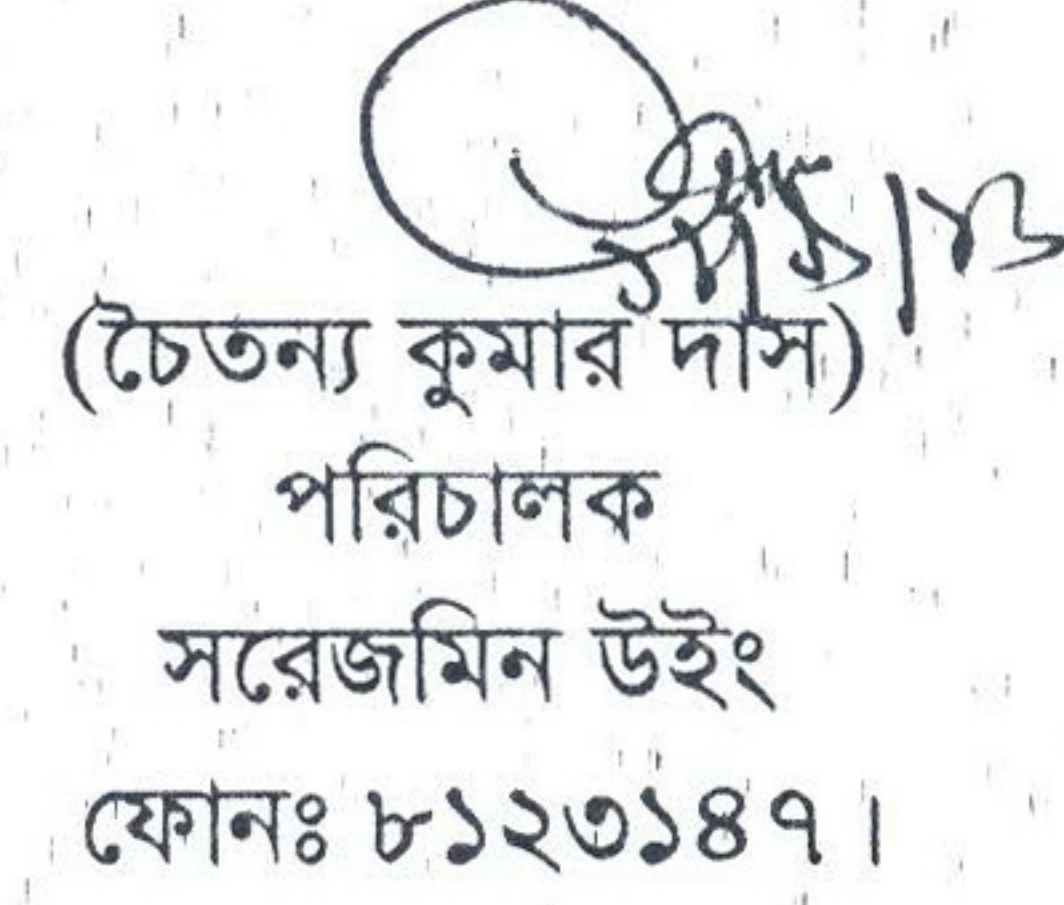 (চৈতন্য কুমার দাস)
পরিচালক
সরেজমিন উইং
ফোনঃ ৮১২৩১৪৭।